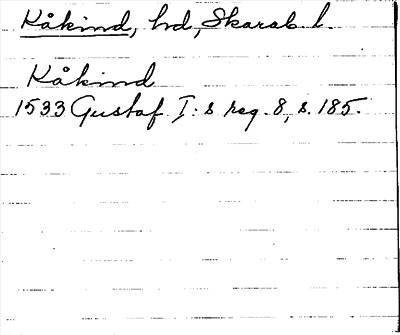 Kåkind, hd, Skarab. l.
Kåkind
1533 Gustaf I:s reg. 8, s. 185.